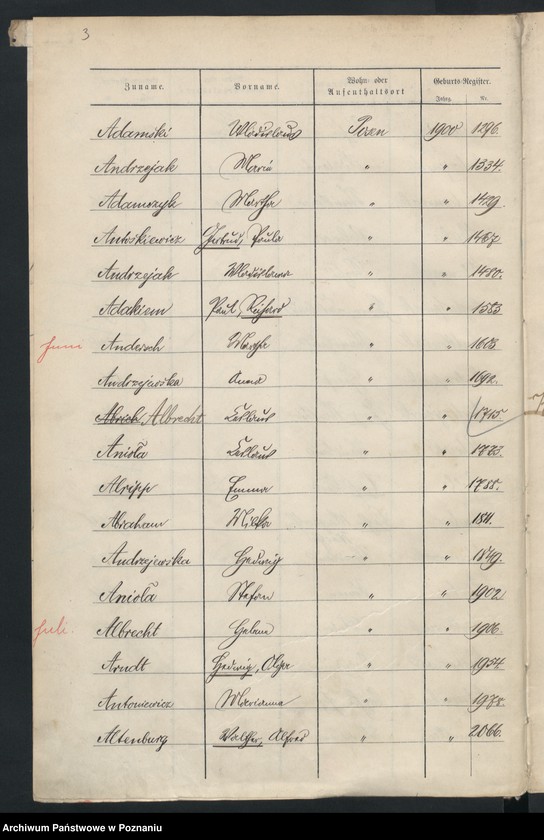 3
Zuname. Vorname. Wohn- oder Aufenthaltsort Geburts-Register. Jahrg. Nr.
Adamski Wladislaus Posen 1900 1296.
Andrzejak Maria " " 1334.
Adamczyk Martha " " 1429.
Antoškiewicz Gertrud, Paula " " 1467
Andrzejak Wladislawa " " 1480.
Adakiem Paul, Richard " " 1583
Juni Andersch " " 1603.
Andrzejewska Anna " " 1692.
Albrecht " " 1715
Anioła " " 1773.
Emma " " 1788.
Abraham " " 1811.
Andrzejewska Hedwig " " 1849.
Anioła Stefan " " 1902
Juli. Albrecht " " 1906.
Arndt Hedwig, Olga " " 1954
Antoniewicz Marianna " " 1978.
Altenburg Walther, Alfred " " 2066.
Archiwum Państwowe w Poznaniu